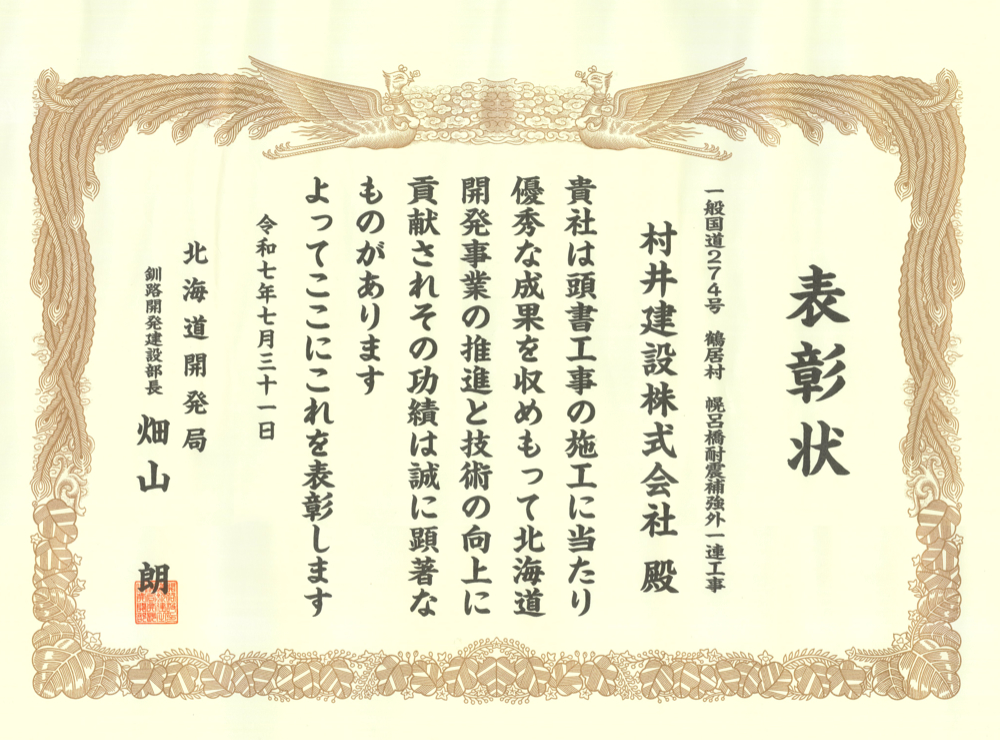 表彰状
一般国道274号 鶴居村 幌呂橋耐震補強外一連工事
村井建設株式会社 殿
貴社は頭書工事の施工に当たり
優秀な成果を収めもって北海道
開発事業の推進と技術の向上に
貢献されその功績は誠に顕著な
ものがあります
よってここにこれを表彰します
令和七年七月三十一日
北海道開発局
釧路開発建設部長 畑山 朗